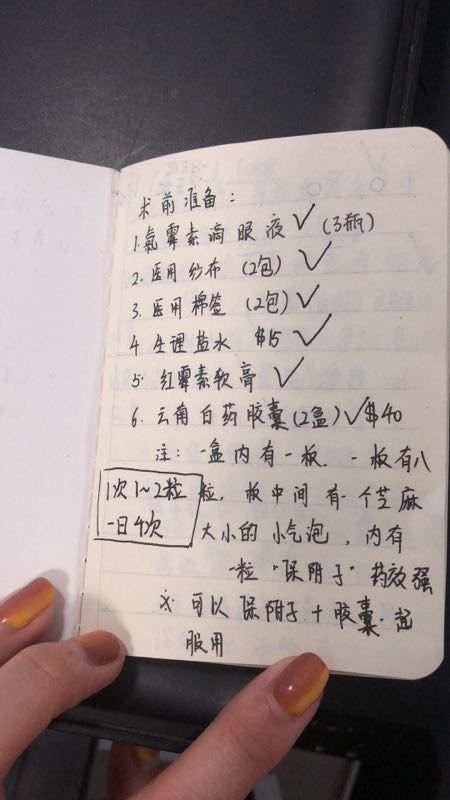 术前准备：
1. 氯霉素滴眼液 ✓ (3瓶)
2. 医用纱布 (2包) ✓
3. 医用棉签 (2包) ✓
4 生理盐水 $15 ✓
5. 红霉素软膏 ✓
6. 云南白药胶囊(2盒) ✓ $40
注：一盒内有一板．一板有八
粒，板中间有一个芝麻
大小的小气泡，内有
一粒"保附子"药效强
※ 可以保附子＋胶囊一起
服用
1次1~2粒
一日4次